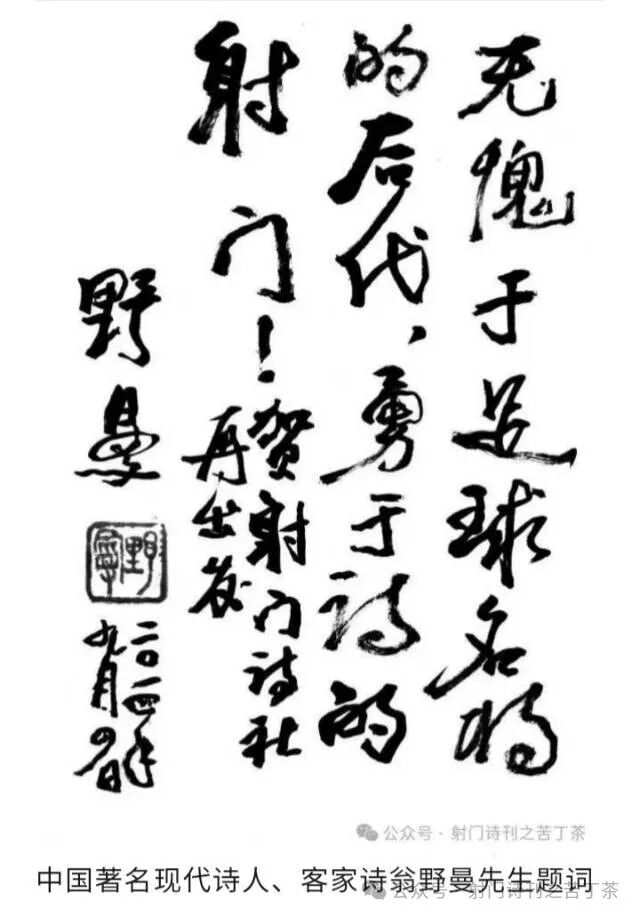 无愧于足球名将
的后代，勇于诗的
射门！
贺射门诗社
再出发
野曼
野曼
二〇一四年
九月
公众号·射门诗刊之苦丁茶
中国著名现代诗人、客家诗翁野曼先生题词
公众号·射门诗刊之苦丁茶